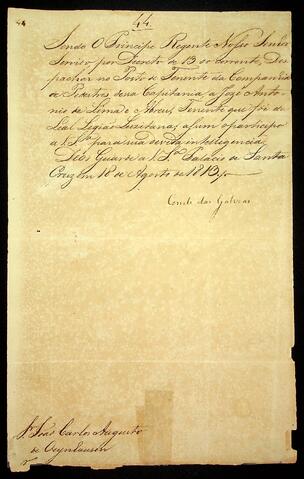 44.
Sendo O Principe Regente Nosso Senhor
Servido, por Decreto de 13 do corrente, Des
pachar no Posto de Tenente da Companhia
de Pedestres dessa Capitania, a José Anto
nio de Lima e Abreu, Tenente que foi da
Leal Legião Luzitana; assim o participo
a V. Sa. para sua devida intelligencia.
Deos Guarde a V. Sa. Palacio de Santa
Cruz em 18 de Agosto de 1813
Conde das Galveas
Sr. João Carlos Augusto
de Oeynhausen